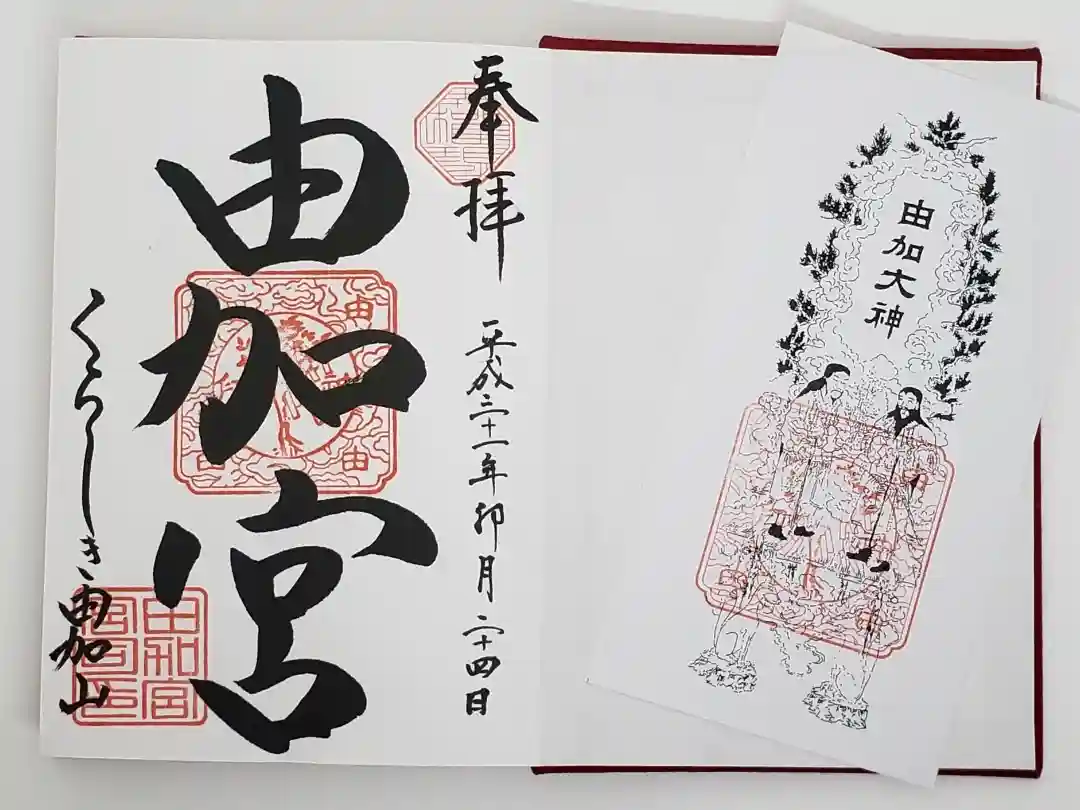 奉拝
平成三十一年卯月二十四日
由加宮
くらしき由加山
由加大神
由
由
由